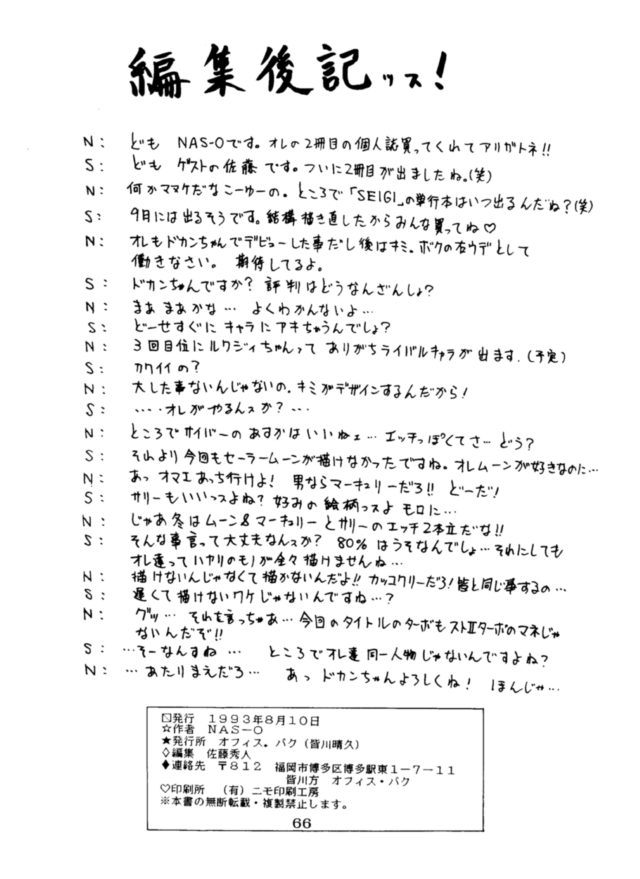 編集後記ッス!
N: ども NAS-Oです。オレの2冊目の個人誌買ってくれてアリガトネ!!
S: ども ゲストの佐藤です。ついに2冊目が出ましたね。(笑)
N: 何かマヌケだなこーゆーの。ところで「SEIGI」の単行本はいつ出るんだね?(笑)
S: 9月には出るそうです。結構描き直したからみんな買ってね♡
N: オレもドカンちゃんでデビューした事だし後はキミ、ボクの右ウデとして
働きなさい。 期待してるよ。
S: ドカンちゃんですか? 評判はどうなんざんしょ?
N: まぁ まぁかな… よくわかんないよ…
S: どーせすぐに キャラに アキちゃうんでしょ?
N: 3回目位に ルクジィちゃんって ありがちライバルキャラが出ます.(予定)
S: カワイイの?
N: 大した事ないんじゃないの。キミがデザインするんだから!
S: ‥‥オレがやるんスか?…
N: ところでサイバーの あすかは いいねェ… エッチっぽくてさ… どう?
S: それより今回もセーラームーンが描けなかったですね。オレムーンが好きなのに…
N: あっ オマエあっち行けよ! 男ならマーキュリーだろ!! どーだ!
S: サリーもいいっスよね? 好みの絵柄っスよ モロに…
N: じゃあ冬はムーン&マーキュリーとサリーのエッチ2本立だな!!
S: そんな事言って大丈夫なんスか? 80%はうそなんでしょ…それにしても
オレ達って ハヤリのモノが全々描けませんね…
N: 描けないんじゃなくて描かないんだよ!! カッコワリーだろ!皆と同じ事するの…
S: 遅くて描けないワケじゃないんですね…?
N: グッ… それを言っちゃぁ…今回のタイトルのターボもストⅡターボのマネじゃ
ないんだぞ!!
S: …そーなんすね … ところでオレ達 同一人物じゃないんですよね?
N: …あたりまえだろ… あっ ドカンちゃんよろしくね! ほんじゃ…
◻発行 1993年8月10日
☆作者 NAS-O
★発行所 オフィス。バク(皆川晴久)
◇編集 佐藤秀人
◆連絡先 〒812 福岡市博多区博多駅東1-7-11
皆川方 オフィス・バク
♡印刷所 (有)ニモ印刷工房
※本書の無断転載・複製禁止します。
66